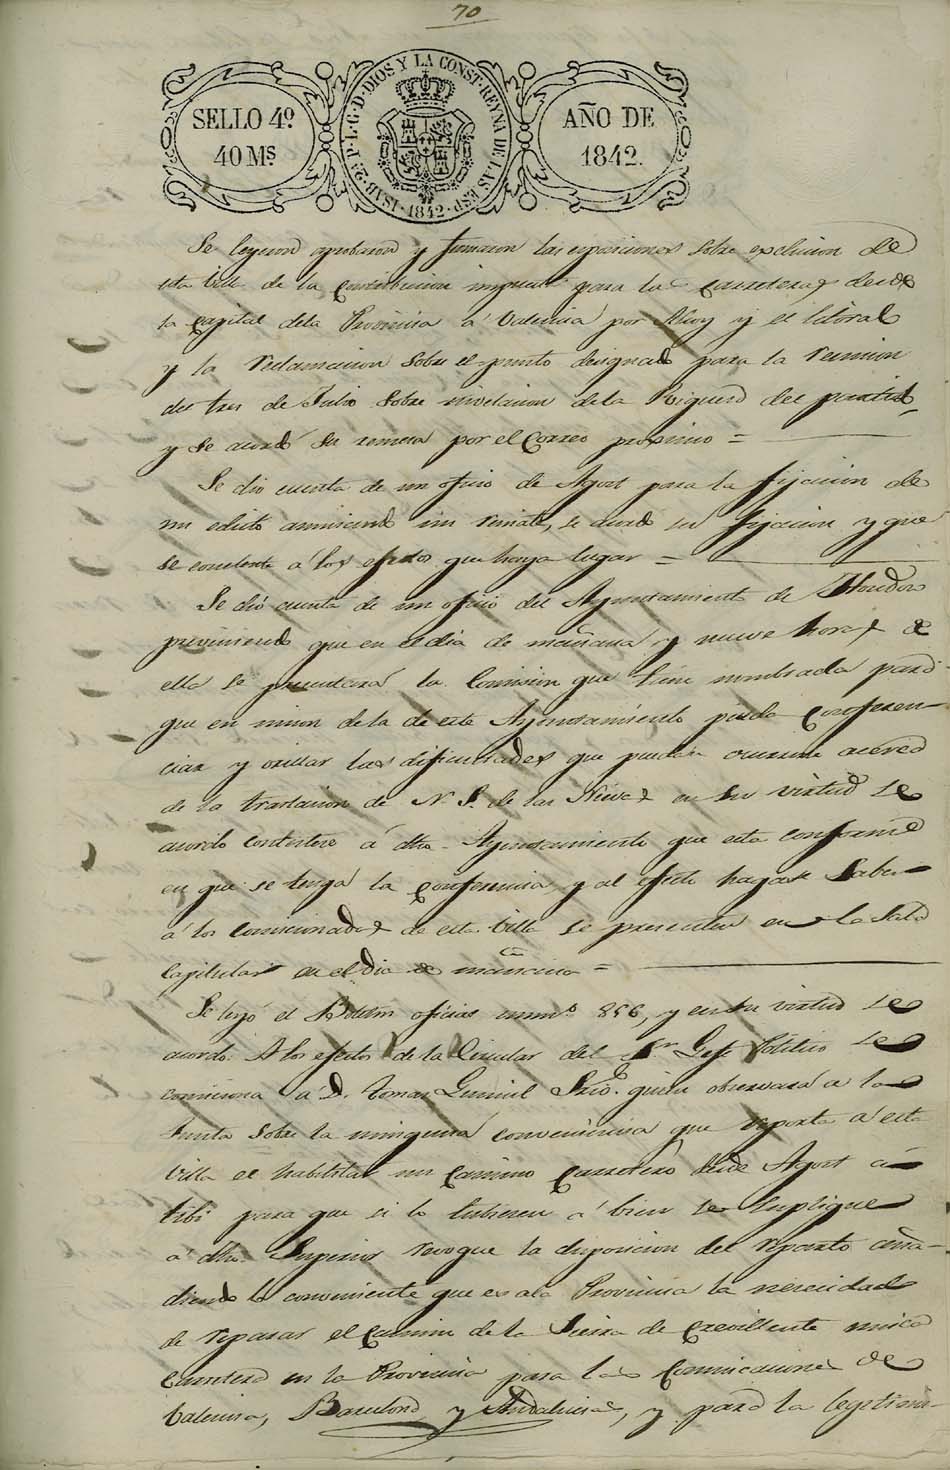 70
SELLO 4º
40 Ms
ISAB. 2ª P. L. G. D. DIOS Y LA CONST. REYNA DE LAS ESP. 1842
AÑO DE
1842.
Se leyeron aprobaron y firmaron las esposiciones sobre esclusion de
esta Villa de la Contribucion impuesta para las Carreteras desde
la Capital dela Provincia á Valencia por Alcoy y el litoral
y la reclamacion sobre el punto designado para la reunion
del tres de Julio sobre nivelacion dela Riqueza del partido
y se acordó su remesa por el Correo proximo =
Se dio cuenta de un oficio de Agost para la fijacion de
un edicto anunciando un remate, se acordó su fijacion y que
se conteste á los efectos que haya lugar =
Se dió cuenta de un oficio del Ayuntamiento de
previniendo que en el dia de mañana y nueve horas de
ella se presentará la Comision que tiene nombrada para
que en union dela de este Ayuntamiento pueda Conferen-
ciar y orillar las dificultades que puedan ocurrir acerca
de la traslacion de N. S. de las Nieves en su virtud se
acordo contestar á dho Ayuntamiento que esta conforme
en que se tenga la Conferencia y al efecto hagase saber
á los Comicionados de esta Villa se presenten en la Sala
Capitular en el dia de mañana =
Se leyó el Boletin oficial num.º 856, y en su virtud se
acordo. A los efectos de la Circular del Sr Gefe Politico se
comisiona á D. Tomas quien observará a la
Junta sobre la ninguna conveniencia que reporta á esta
Villa el habilitar un Camino Carretero desde Agost á
Tibi para que si lo tubieren á bien se suplique
á dho Superior revoque la disposicion del reparto aña-
diendo lo conveniente que es ala Provincia la necesidad
de reparar el Camino de la Sierra de Crevillente unica
Carretera en la Provincia para las Comnicaciones de
Valencia, Barcelona y Andalucia, y para la legitima-